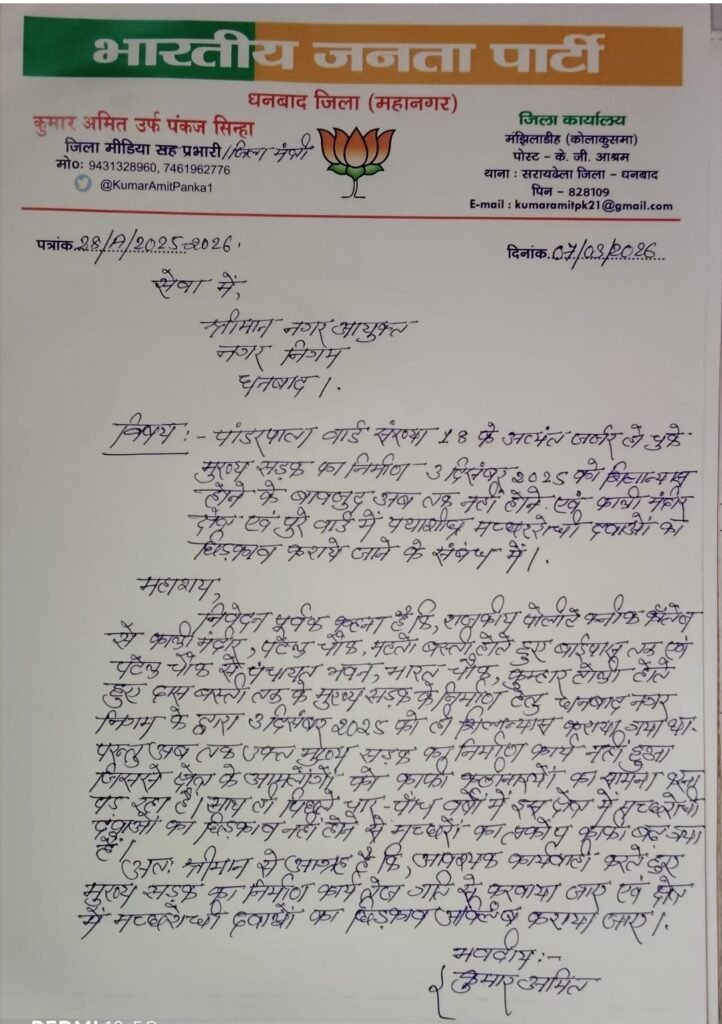 भारतीय जनता पार्टी
धनबाद जिला (महानगर)
कुमार अमित उर्फ पंकज सिन्हा
जिला मीडिया सह प्रभारी/जिला मंत्री
मो०: 9431328960, 7461962776
@KumarAmitPanka1
जिला कार्यालय
मंझिलाडीह (कोलाकुसमा)
पोस्ट - के. जी. आश्रम
थाना : सरायढेला जिला - धनबाद
पिन - 828109
E-mail : kumaramitpk21@gmail.com
पत्रांक 28/A/2025-2026.
दिनांक 07/03/2026
सेवा में,
श्रीमान नगर आयुक्त
नगर निगम
धनबाद।
विषय :- पांडरपाला वार्ड संख्या 18 के अत्यंत जर्जर हो चुके
मुख्य सड़क का निर्माण 3 दिसंबर 2025 को शिलान्यास
होने के बावजुद अब तक नहीं होने एवं काली मंदीर
क्षेत्र एवं पुरे वार्ड में यथाशीघ्र मच्छररोधी दवाओं का
छिड़काव कराये जाने के संबंध में।
महाशय,
निवेदन पूर्वक कहना है कि, राजकीय पोलीटेक्नीक कॉलेज
से काली मंदीर, पटेल चौक, महतो बस्ती होते हुए बाईपास तक एवं
पटेल चौक से पंचायत भवन, भारत चौक, कुम्हार टोली होते
हुए दास बस्ती तक के मुख्य सड़क के निर्माण हेतु धनबाद नगर
निगम के द्वारा 3 दिसंबर 2025 को ही शिलान्यास कराया गया था
परन्तु अब तक उक्त मुख्य सड़क का निर्माण कार्य नहीं हुआ
जिससे क्षेत्र के आमलोगों को काफी कठीनाईयों का सामना करना
पड़ रहा है। साथ ही पिछले चार-पाँच वर्षों में इस क्षेत्र में मच्छररोधी
दवाओं का छिड़काव नहीं होने से मच्छरों का प्रकोप काफी बढ़ गया
है।
अतः श्रीमान से आग्रह है कि, आवश्यक कार्यवाही करते हुए
मुख्य सड़क का निर्माण कार्य तेज गति से करवाया जाए एवं क्षेत्र
में मच्छररोधी दवाओं का छिड़काव अविलंब कराया जाए।
भवदीय:-
कुमार अमित